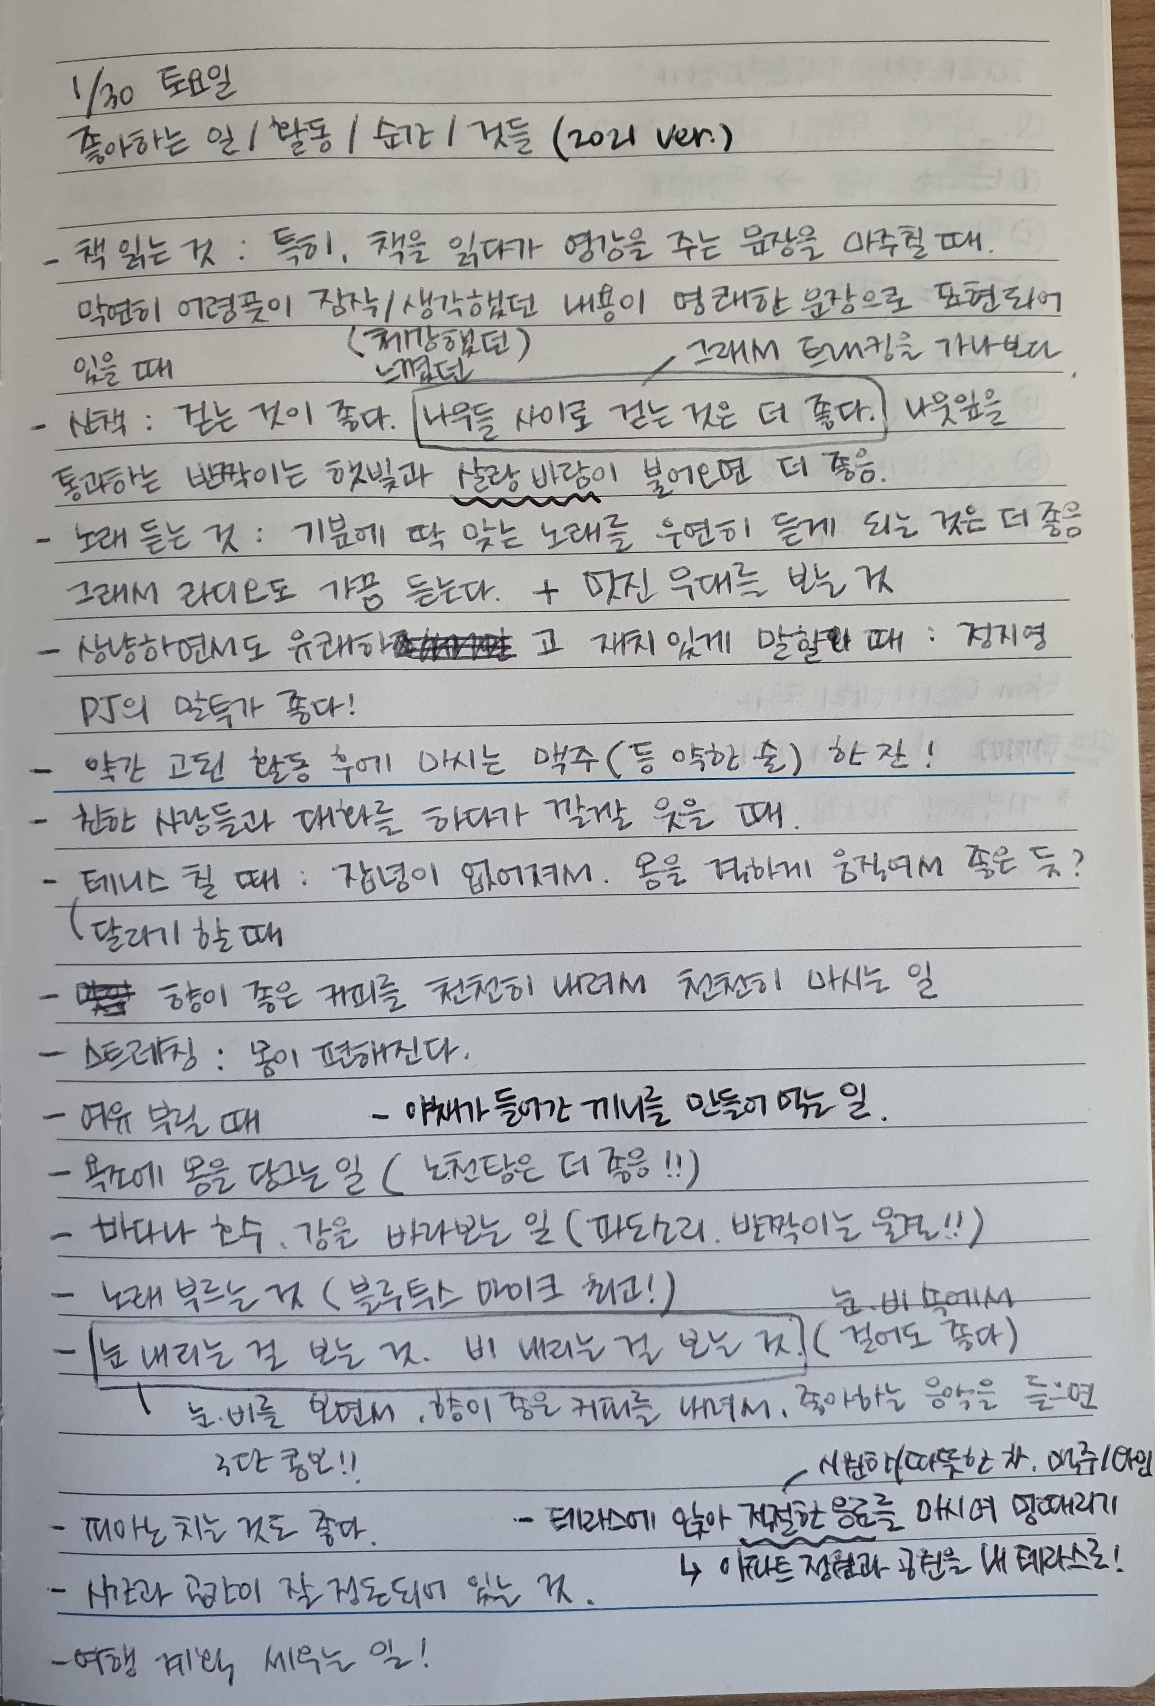 1/30 토요일
좋아하는 일 / 활동 / 순간 / 것들 (2021 ver.)
- 책 읽는 것 : 특히, 책을 읽다가 영감을 주는 문장을 마주칠 때.
막연히 어렴풋이 짐작/생각했던 내용이 명쾌한 문장으로 표현되어
(체감했던)
있을 때
느꼈던
그래서 트래킹을 가나보다.
- 산책 : 걷는 것이 좋다. 나무들 사이로 걷는 것은 더 좋다. 나뭇잎을
통과하는 반짝이는 햇빛과 살랑 바람이 불어오면 더 좋음.
- 노래 듣는 것 : 기분에 딱 맞는 노래를 우연히 듣게 되는 것은 더 좋음
그래서 라디오도 가끔 듣는다. + 멋진 무대를 보는 것
- 상냥하면서도 유쾌하고 재치 있게 말할 때 : 정지영
DJ의 말투가 좋다!
- 약간 고된 활동 후에 마시는 맥주(등 약한 술) 한 잔!
- 친한 사람들과 대화를 하다가 깔깔 웃을 때.
- 테니스 칠 때 : 잡념이 없어져서. 몸을 격하게 움직여서 좋은 듯?
달리기 할 때
- 향이 좋은 커피를 천천히 내려서 천천히 마시는 일
- 스트레칭 : 몸이 편해진다.
- 여유 부릴 때 - 야채가 들어간 끼니를 만들어 먹는 일.
- 욕조에 몸을 담그는 일 ( 노천탕은 더 좋음!!)
- 바다나 호수, 강을 바라보는 일 (파도소리, 반짝이는 물결!!)
- 노래 부르는 것 (블루투스 마이크 최고!)
눈, 비 속에서
- 눈 내리는 걸 보는 것. 비 내리는 걸 보는 것. ( 걸어도 좋다)
눈, 비를 보면서, 향이 좋은 커피를 내려서, 좋아하는 음악을 들으면
3단 콤보!!
시원한/따뜻한 차, 맥주/와인
- 피아노 치는 것도 좋다. - 테라스에 앉아 적절한 음료를 마시며 멍때리기
↳ 아파트 정원과 공원을 내 테라스로!
- 시간과 공간이 잘 정돈되어 있는 것.
- 여행 계획 세우는 일!